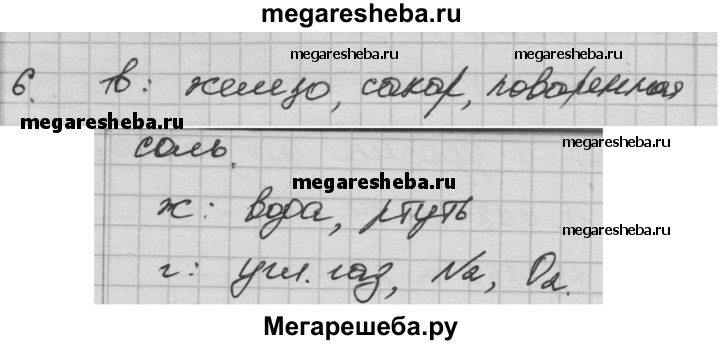 megaresheba.ru
megaresheba.ru megaresheba.ru
6. тв: железо, сахар, поваренная
megaresheba.ru
соль.
megaresheba.ru
megaresheba.ru
ж: вода, ртуть
megaresheba.ru
г: угл. газ, N2, O2.
Мегарешеба.ру